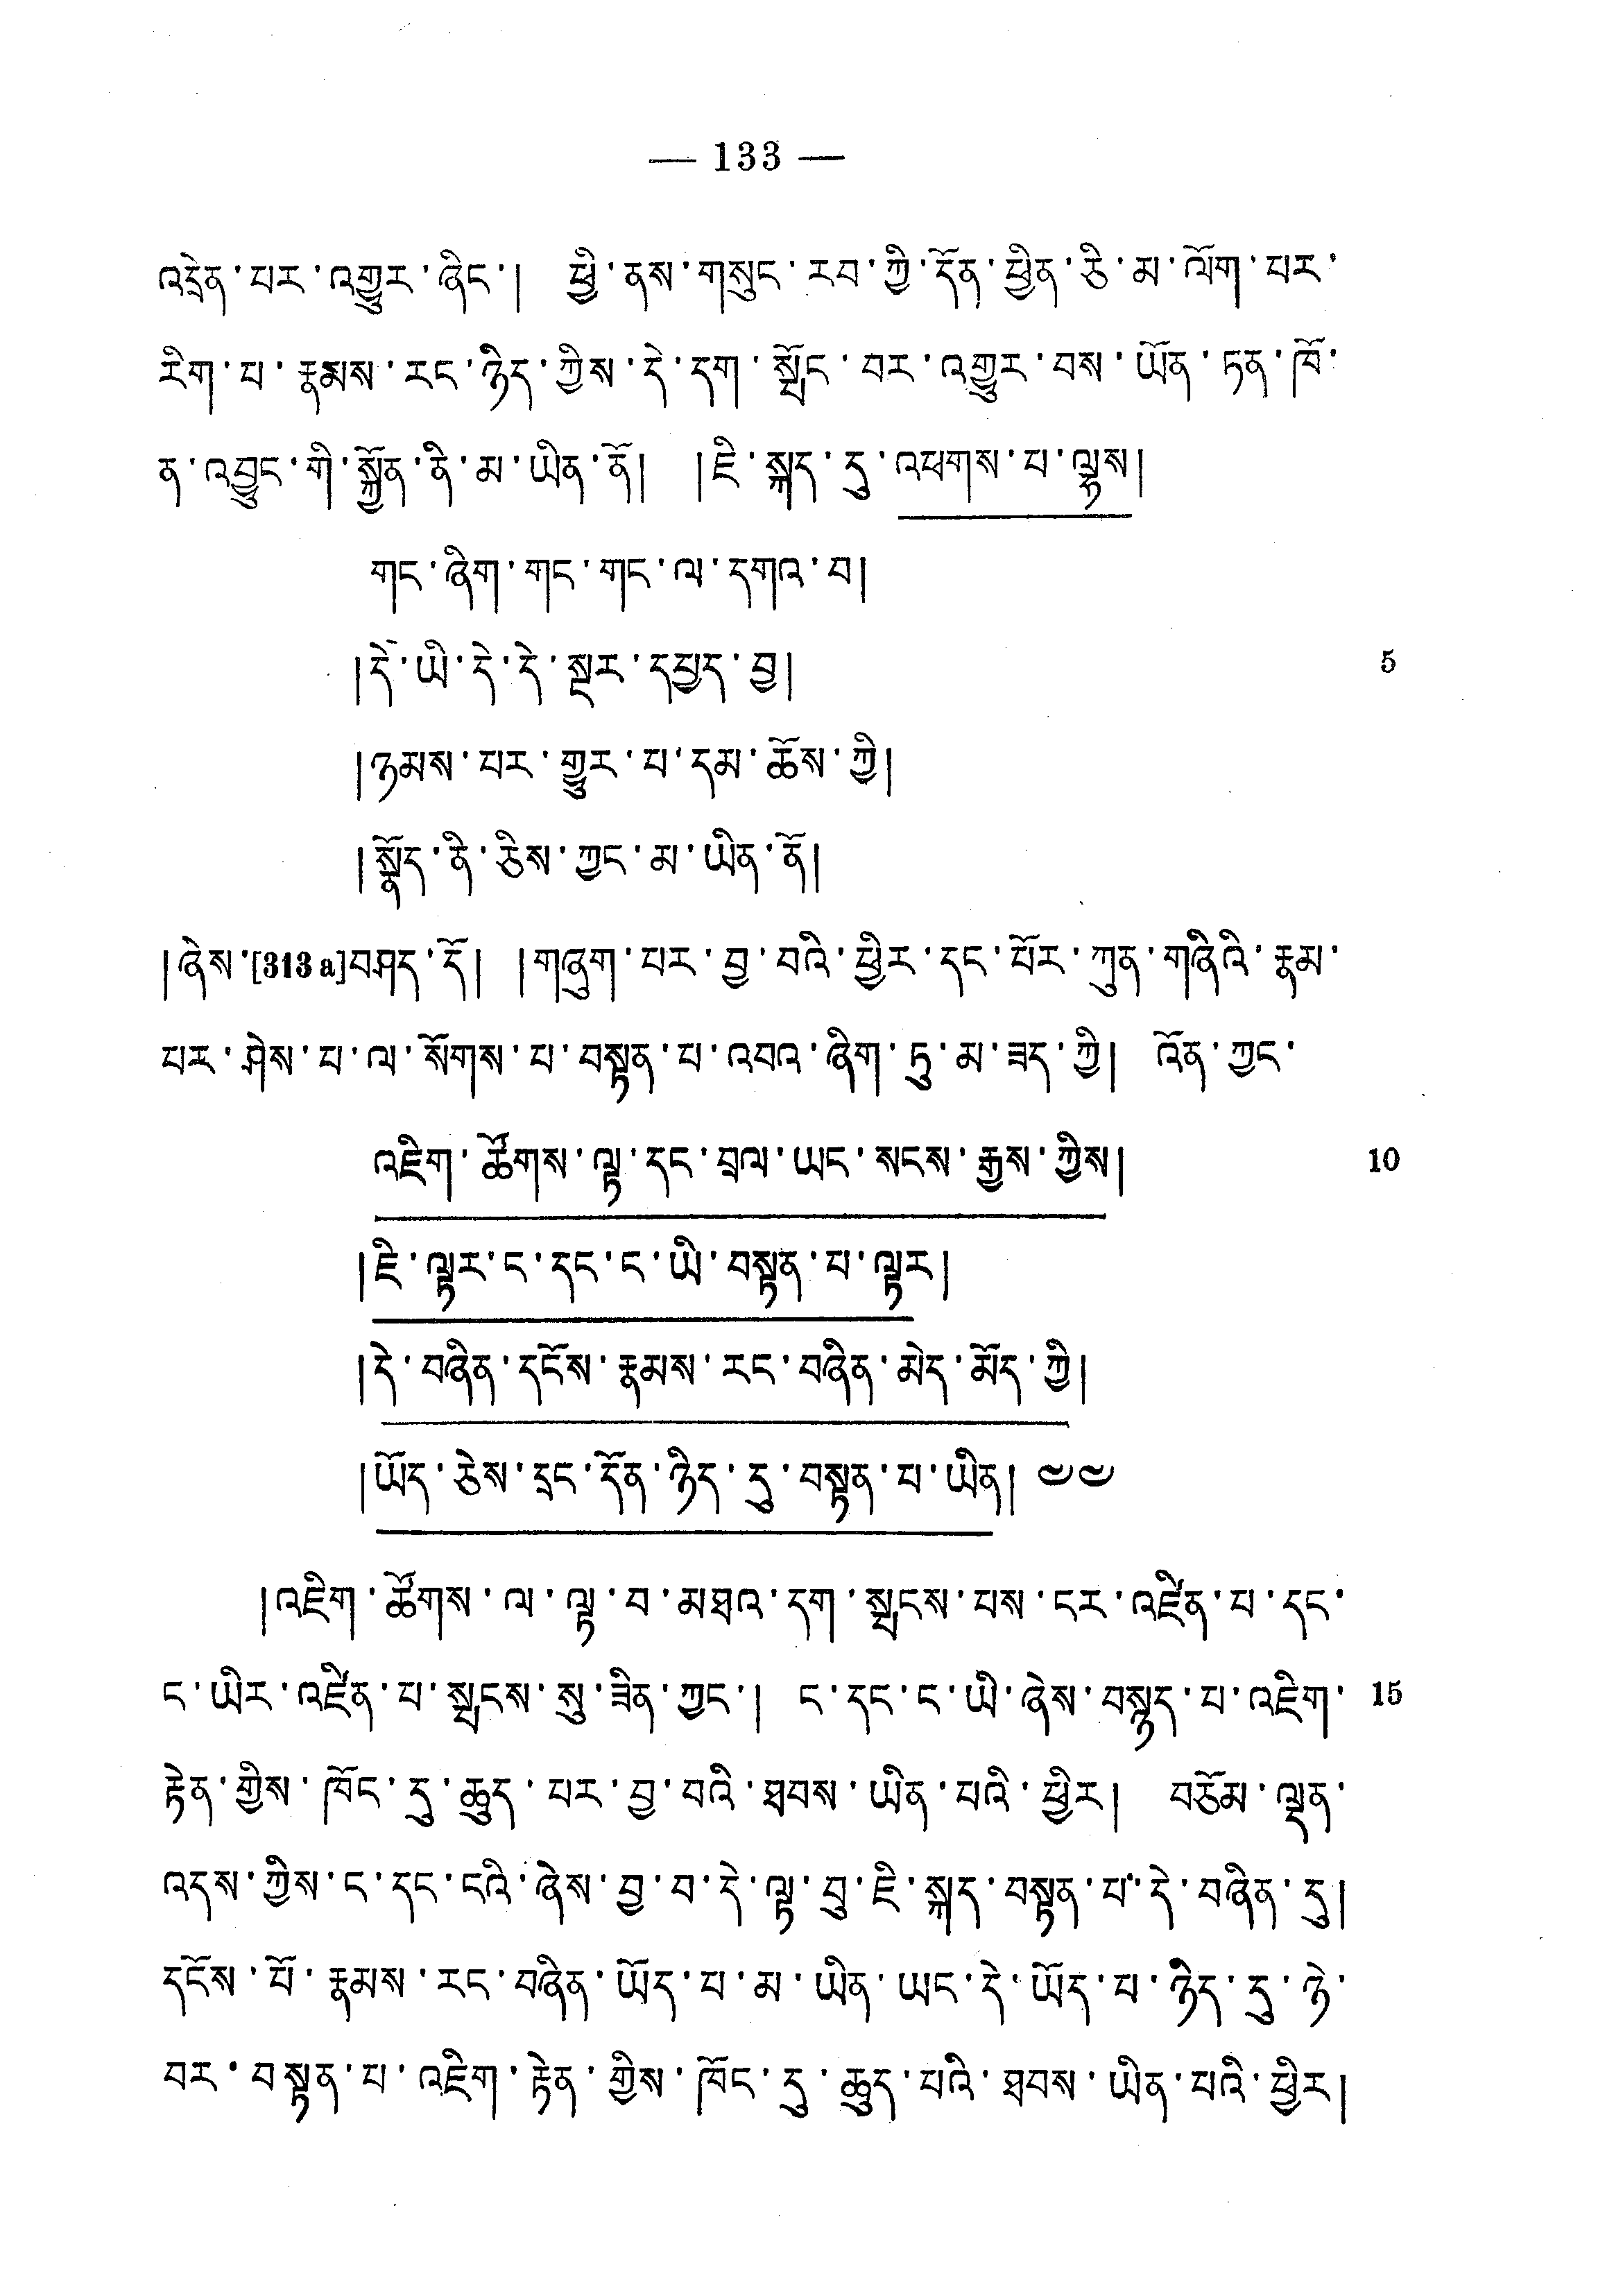 — 133 —
འདྲེན་པར་འགྱུར་ཞིང་། ཕྱི་ནས་གསུང་རབ་ཀྱི་དོན་ཕྱིན་ཅི་མ་ལོག་པར་
རིག་པ་རྣམས་རང་ཉིད་ཀྱིས་དེ་དག་སྤོང་བར་འགྱུར་བས་ཡོན་ཏན་ཁོ་
ན་འབྱུང་གི་སྐྱོན་ནི་མ་ཡིན་ནོ། །ཇི་སྐད་དུ་འཕགས་པ་ལྷས།
གང་ཞིག་གང་གང་ལ་དགའ་བ།
།དེ་ཡི་དེ་དེ་སྔར་དཔྱད་བྱ། 5
།ཉམས་པར་གྱུར་པ་དམ་ཆོས་ཀྱི།
།སྣོད་ནི་ཅིས་ཀྱང་མ་ཡིན་ནོ།
།ཞེས་[313 a]བཤད་དོ། །གཞུག་པར་བྱ་བའི་ཕྱིར་དང་པོར་ཀུན་གཞིའི་རྣམ་
པར་ཤེས་པ་ལ་སོགས་པ་བསྟན་པ་འབའ་ཞིག་ཏུ་མ་ཟད་ཀྱི། འོན་ཀྱང་
འཇིག་ཚོགས་ལྟ་དང་བྲལ་ཡང་སངས་རྒྱས་ཀྱིས། 10
།ཇི་ལྟར་ང་དང་ང་ཡི་བསྟན་པ་ལྟར།
།དེ་བཞིན་དངོས་རྣམས་རང་བཞིན་མེད་མོད་ཀྱི།
།ཡོད་ཅེས་དྲང་དོན་ཉིད་དུ་བསྟན་པ་ཡིན། ༦༦
།འཇིག་ཚོགས་ལ་ལྟ་བ་མཐའ་དག་སྤངས་པས་ངར་འཛིན་པ་དང་
ང་ཡིར་འཛིན་པ་སྤངས་སུ་ཟིན་ཀྱང་། ང་དང་ང་ཡི་ཞེས་བསྙད་པ་འཇིག་ 15
རྟེན་གྱིས་ཁོང་དུ་ཆུད་པར་བྱ་བའི་ཐབས་ཡིན་པའི་ཕྱིར། བཅོམ་ལྡན་
འདས་ཀྱིས་ང་དང་ངའི་ཞེས་བྱ་བ་དེ་ལྟ་བུ་ཇི་སྐད་བསྟན་པ་དེ་བཞིན་དུ།
དངོས་པོ་རྣམས་རང་བཞིན་ཡོད་པ་མ་ཡིན་ཡང་དེ་ཡོད་པ་ཉིད་དུ་ཉེ་
བར་བསྟན་པ་འཇིག་རྟེན་གྱིས་ཁོང་དུ་ཆུད་པའི་ཐབས་ཡིན་པའི་ཕྱིར།